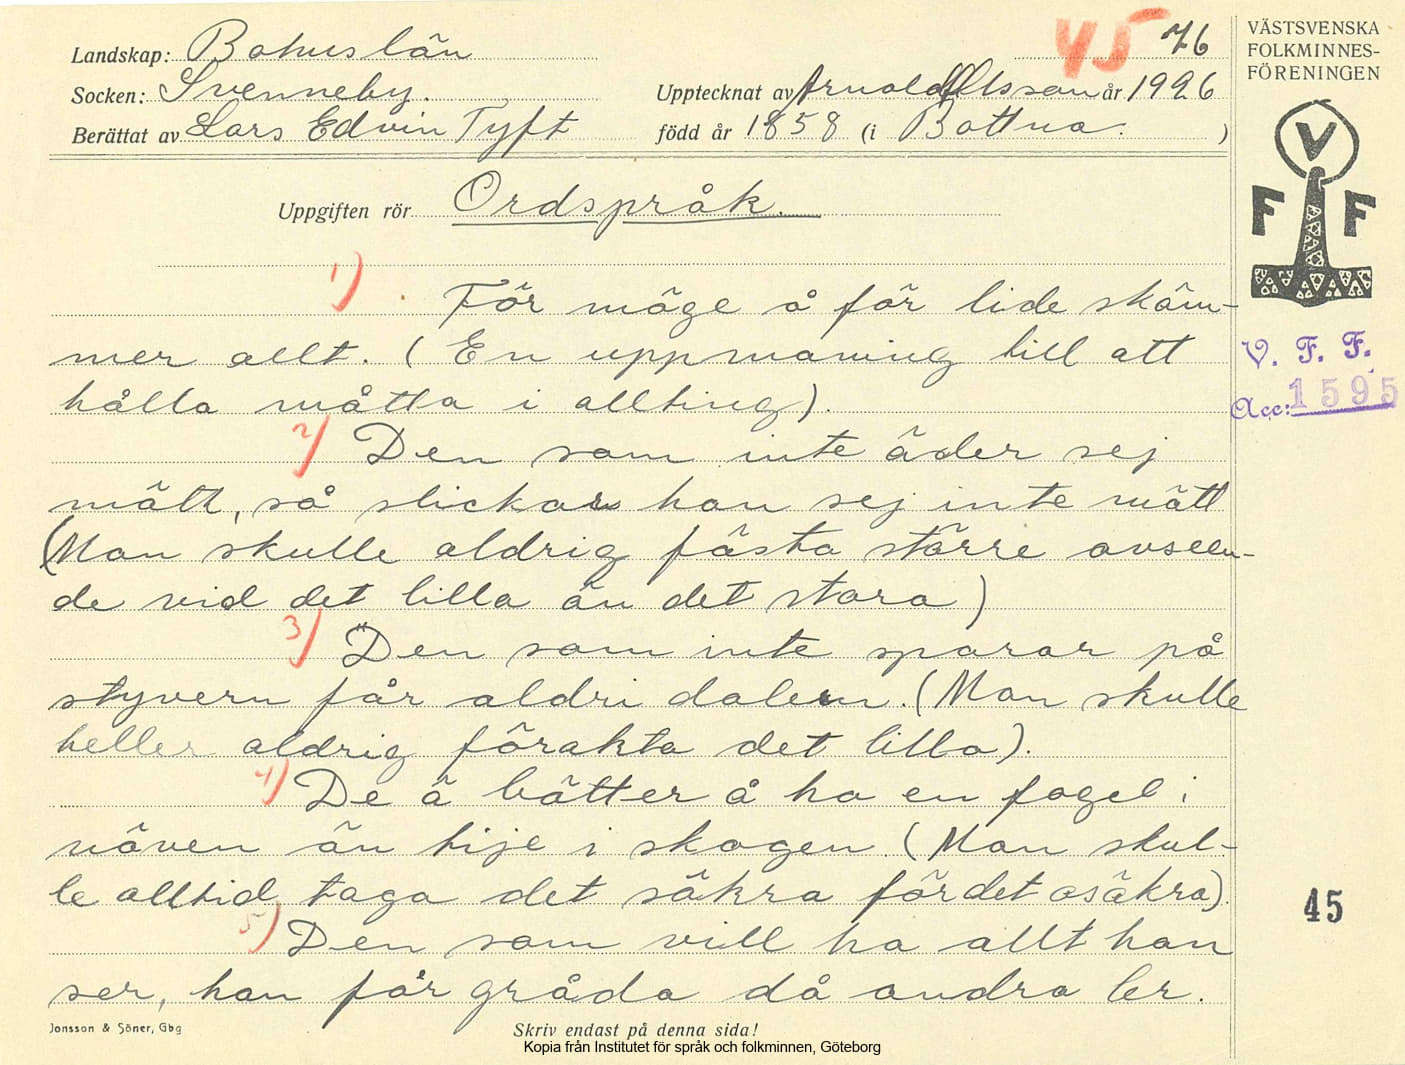 Landskap: Bohuslän
45 76
Socken: Svenneby.
Upptecknat av Arnold Olsson år 1926
Berättat av Lars Edvin Tyft
född år 1858 (i Bottna. )
VÄSTSVENSKA
FOLKMINNES-
FÖRENINGEN
V
F F
Uppgiften rör Ordspråk.
1) För möge å för lide skäm-
mer allt. (En uppmaning till att
hålla måtta i allting).
2) Den som inte äder sej
mätt, så slickar han sej inte mätt
(Man skulle aldrig fästa större avseen-
de vid det lilla än det stora)
3) Den som inte sparar på
styvern får aldri dalern. (Man skulle
heller aldrig förakta det lilla).
4) De ä bätter å ha en fogel i
näven än tije i skogen. (Man skul-
le alltid taga det säkra för det osäkra).
5) Den som vill ha allt han
ser, han får gråda då andra ler.
V. F. F.
Acc: 1595
45
Jonsson & Söner, Gbg
Skriv endast på denna sida!
Kopia från Institutet för språk och folkminnen, Göteborg